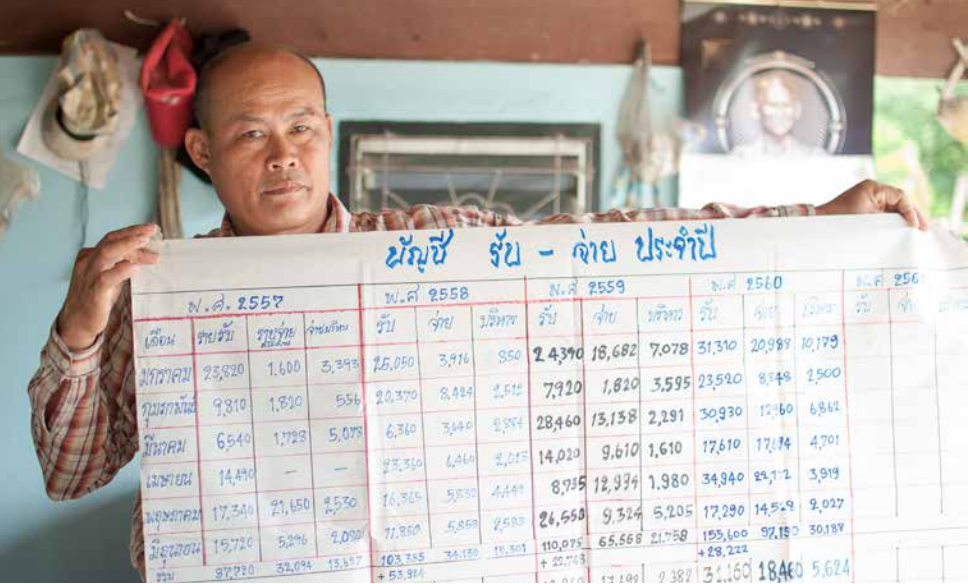 บัญชี รับ - จ่าย ประจำปี
พ.ศ. 2557 พ.ศ 2558 พ.ศ 2559 พ.ศ 2560 พ.ศ
เดือน รายรับ รายจ่าย รับ จ่าย บริหาร รับ จ่าย บริหาร รับ จ่าย บริหาร รับ
มกราคม 23,820 1,600 3,393 25,050 3,916 850 24,390 18,682 7,078 31,310 20,988 10,179
กุมภาพันธ์ 9,810 1,820 556 20,370 8,424 2,512 7,920 1,820 3,595 23,520 8,848 2,500
มีนาคม 6,540 1,728 5,078 6,360 28,460 13,138 2,291 30,930 6,862
เมษายน 14,490 — — 23,360 6,460 2,023 14,020 9,610 1,610 17,610 4,701
พฤษภาคม 17,340 21,650 2,530 16,365 5,830 4,449 8,735 12,994 1,980 34,940 3,919
มิถุนายน 15,720 5,296 2,080 11,850 5,858 26,550 9,324 5,205 17,290 14,528 2,027
รวม 87,720 32,094 13,637 103,355 34,130 110,075 65,568 21,758 155,600 97,180 30,188
+ 53,924 + 22,743 +28,222
17,190 2,382 31,160 18,460 5,624